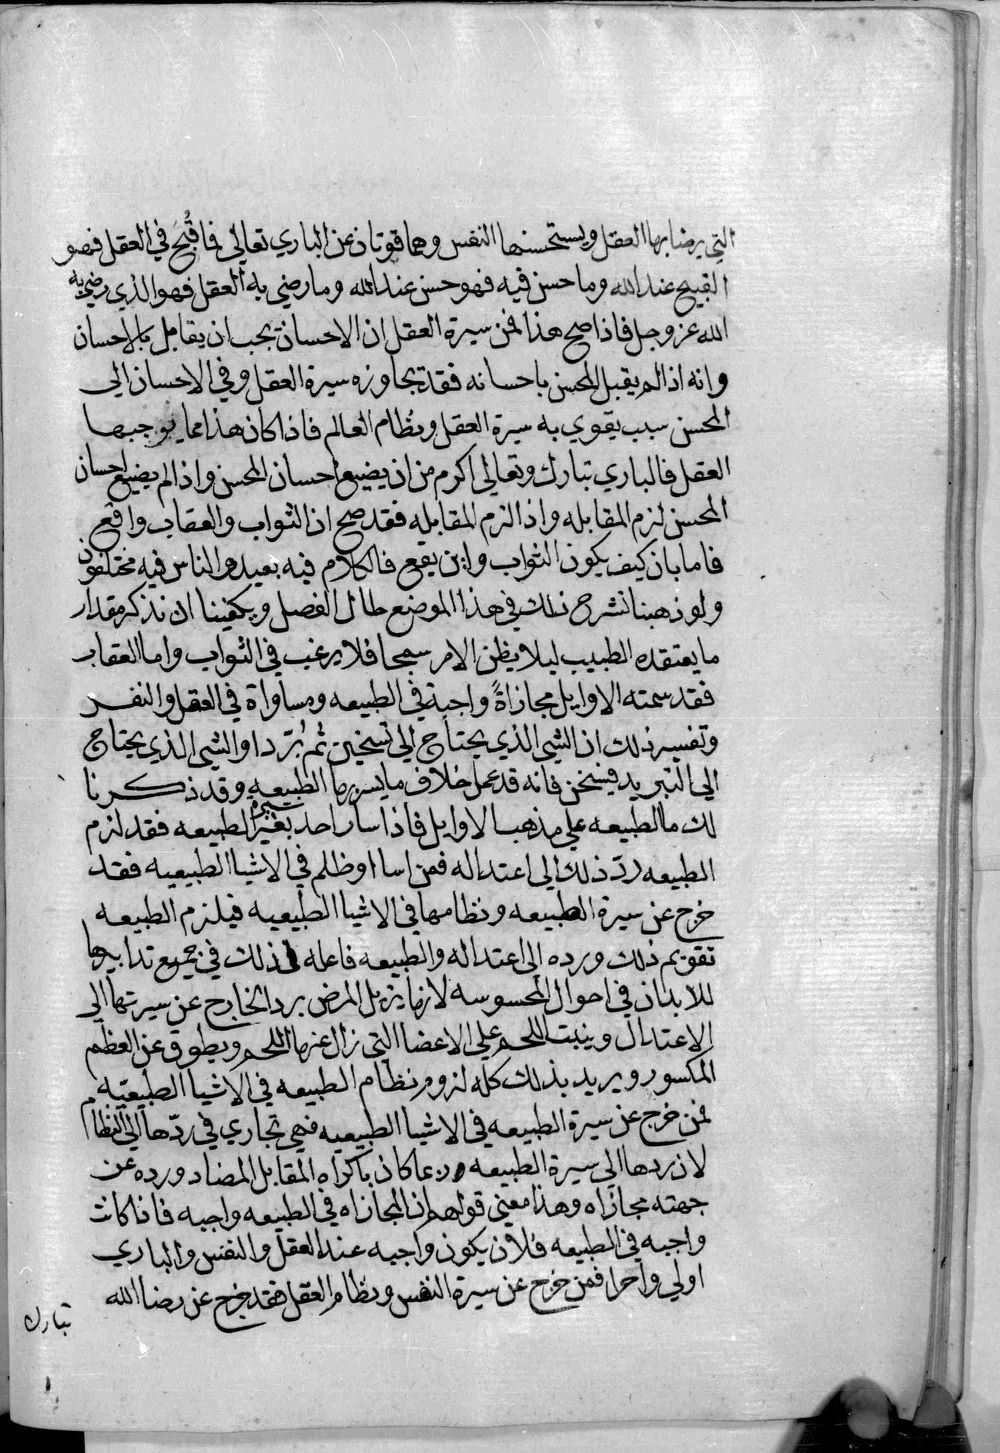 التي يرضا بها العقل ويستحسنها النفس وهما قوتان من الباري تعالي فما قُبحَ في العقل فهو
القبيح عند الله وما حسن فيه فهو حسن عند الله وما رضي به العقل فهو الذي رضي به
الله عز وجل فاذا صح هذا فمن سيرة العقل ان الاحسان يجب ان يقابل بالاحسان
وانه اذا لم يقبل المحسن باحسانه فقد تجاوزه سيرة العقل وفي الاحسان الي
المحسن سبب يقوي به سيرة العقل ونظام العالم فاذا كان هذا مما يوجبها
العقل فالباري تبارك وتعالي اكرم من ان يضيع احسان المحسن واذا لم يضيع احسان
المحسن لزم المقابله واذا لزم المقابله فقد صح ان الثواب والعقاب واقع
فاما بان كيف يكون الثواب واين يقع فالكلام فيه بعيد والناس فيه مختلفون
ولو ذهبنا نشرح ذلك في هذا الموضع طال الفصل ويكفينا ان نذكر مقدار
ما يعتقده الطبيب ليلا يظن الامر سمجا فلا يرغب في الثواب واما العقاب
فقد سمته الاوايل مجازاةً واجبة في الطبيعه ومساواة في العقل والنفس
وتفسير ذلك ان الشي الذي يحتاج الي تسخين ثم بُرّد او الشي الذي يحتاج
الي التبريد فيسخن فانه قد عمل خلاف ما يسير بها الطبيعه وقد ذكرنا
لك ما الطبيعه علي مذهب الاوايل فاذا سار احد بغير سيرة الطبيعه فقد لزم
الطبيعه ردّ ذلك الي اعتداله فمن اسا او ظلم في الاشيا الطبيعيه فقد
خرج عن سيرة الطبيعه ونظامها في الاشيا الطبيعيه فيلزم الطبيعه
تقويم ذلك ورده الي اعتداله والطبيعه فاعله لذلك في جميع تدابيرها
للابدان في احوال المحسوسه لانها يزيل المرض برد الخارج عن سيرتها الي
الاعتدال وينبت اللحم علي الاعضا التي زال عنها اللحم ويطوق عن العظم
المكسور ويريد بذلك كله لزوم نظام الطبيعه في الاشيا الطبيعيّه
فمن خرج عن سيرة الطبيعه في الاشيا الطبيعيه فهي تجاري في ردّها الي النظام
لان ردها الي سيرة الطبيعه ربما كان باكراه المقابل المضاد ورده عن
جهته مجازاه وهذا معني قولهم ان المجازاه في الطبيعه واجبه فاذا كانت
واجبه في الطبيعه فلان يكون واجبه عند العقل والنفس والباري
اولي واحرا فمن خرج عن سيرة النفس ونظام العقل فقد خرج عن رضا الله
تبارك